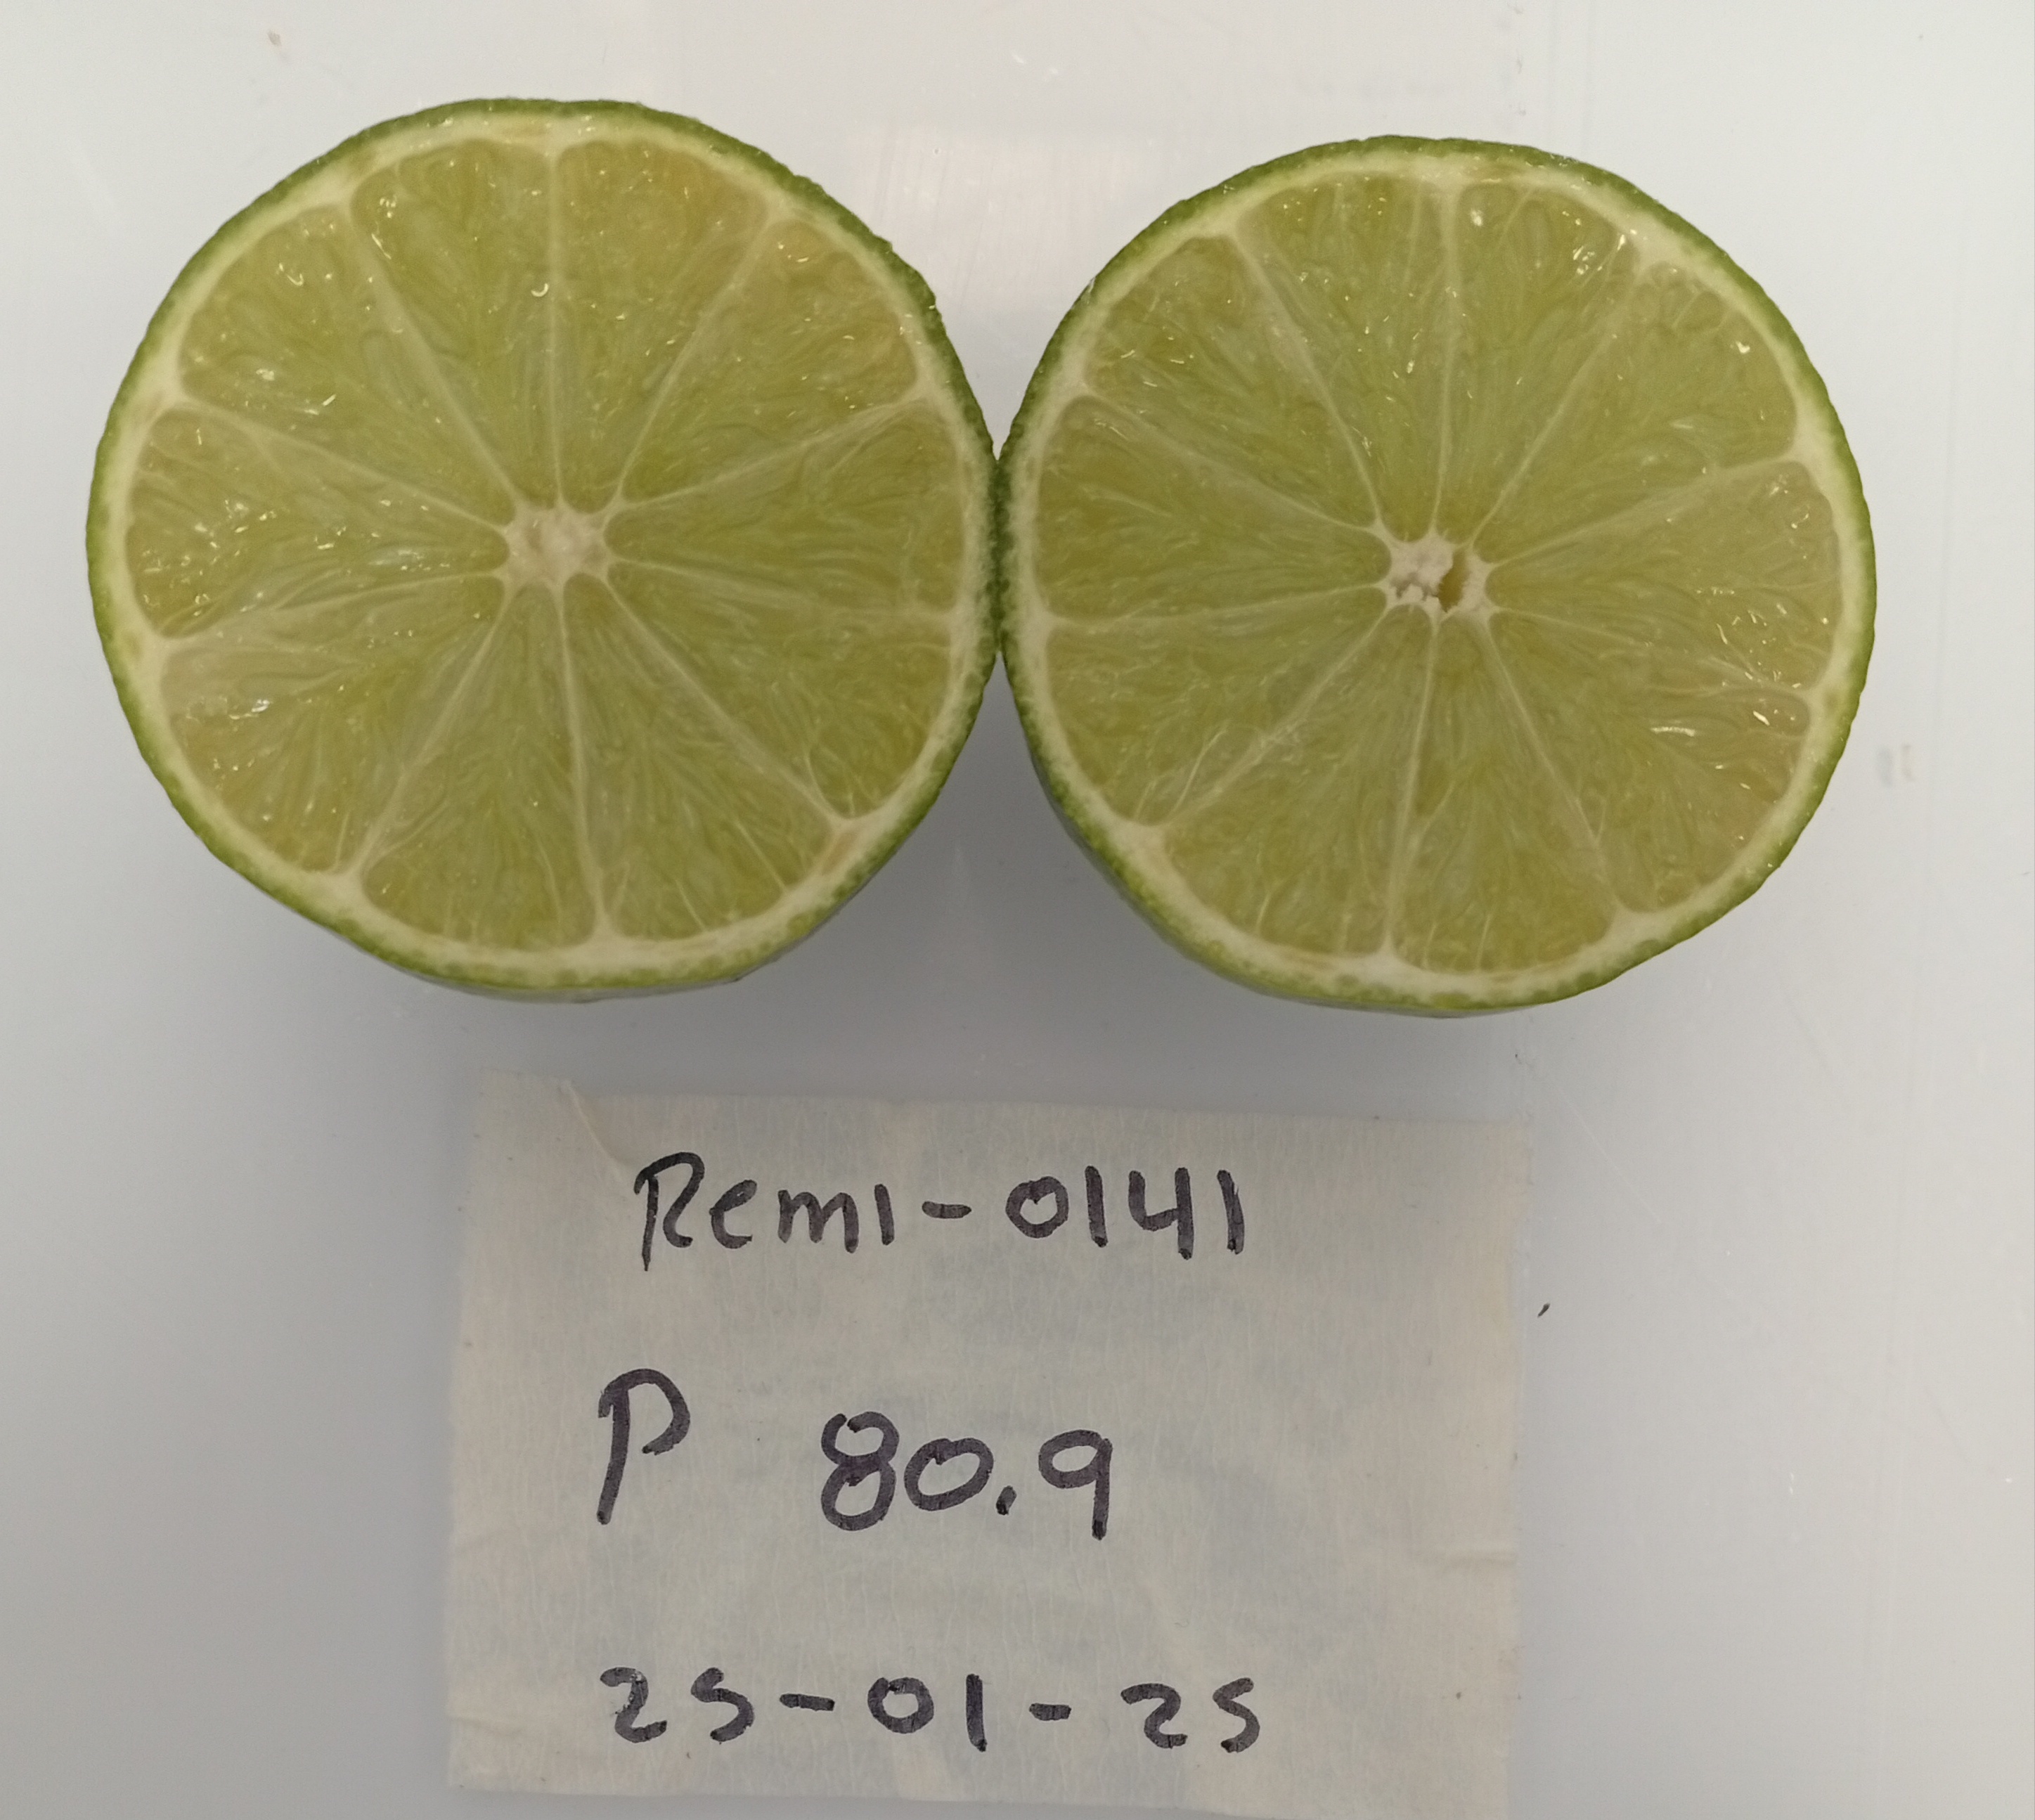 Remi-0141
P 80.9
25-01-25